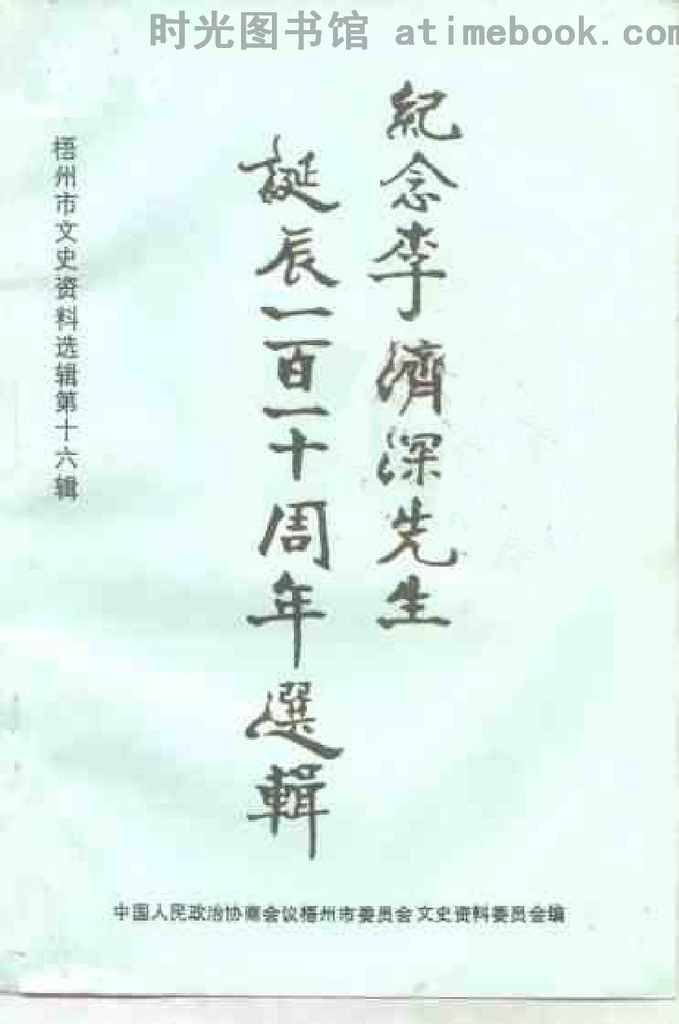 时光图书馆 atimebook.com
紀念李濟深先生
誕辰一百一十周年選輯
梧州市文史资料选辑第十六辑
中国人民政治协商会议梧州市委员会文史资料委员会编